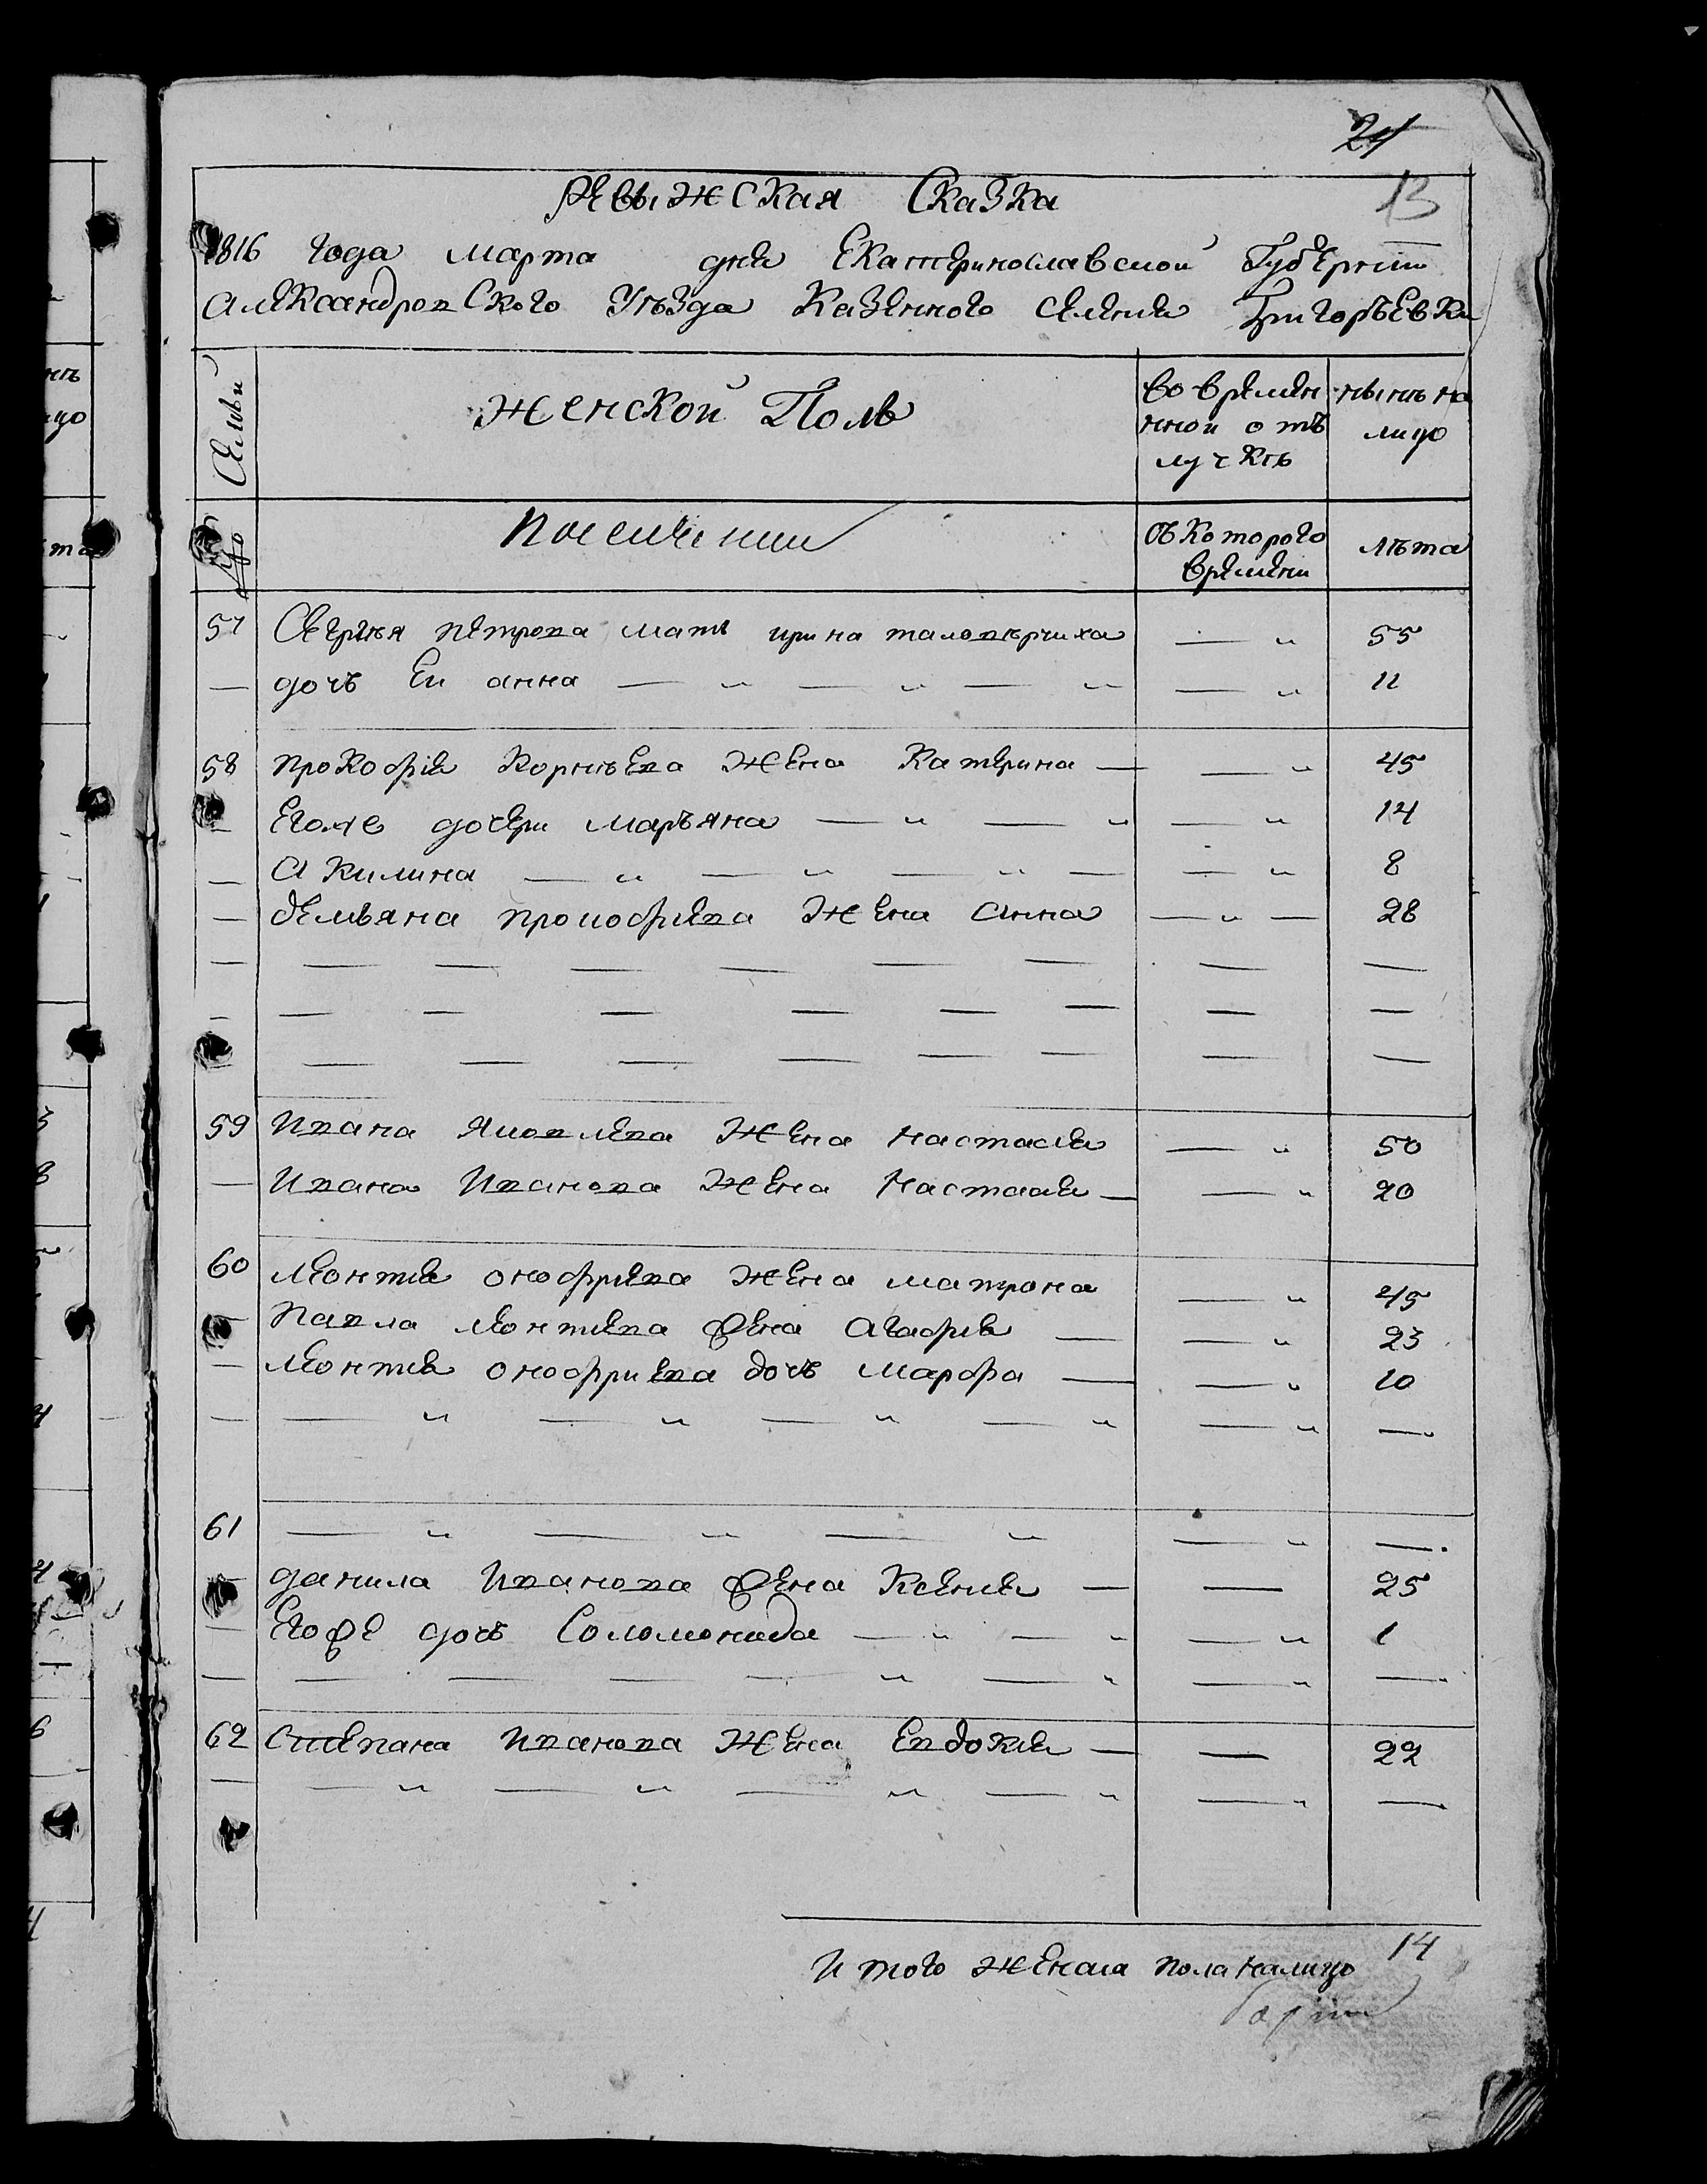 24
13
Ревыжская Сказка
1816 года марта дня Екатеринославской Губернии
Александровского Уѣзда Казенного селения Григорьевки
Семьи
Женской Полъ
во времен
нной отъ
лучкѣ
нынѣ на
лицо
съ которого
времени
лѣта
57 Сергѣя петрова мать ирина — „ 55
— дочь Ей анна — „ — „ — „ — „ 11
58 прокофія Корнѣева Жена Катерина — — „ 45
— Егоже дочери марьяна — „ — „ — „ 14
— Акилина — „ — „ — „ — — „ 8
— демьяна прокофиева Жена Анна — „ — 28
— — — — — — — — —
— — — — — — — — —
— — — — — — — — —
59 Ивана Яковлева Жена настасия — „ 50
— Ивана Иванова Жена Настасия — — „ 20
60 леонтия онофриева жена матрона — „ 45
— Павла леонтиева жена Агафия — — „ 23
— леонтия онофриева дочь марфа — — „ 10
— — „ — „ — „ — „ — „ —
61 — „ — „ — „ — „ —
— данила Иванова жена Ксения — — 25
— Егоже дочь Соломонида — „ — „ — „ 1
— — — — — „ — „ — „ —
62 Степана Иванова Жена Евдокия — — 22
— — „ — „ — „ — „ — „ —
Итого женска пола налицо 14